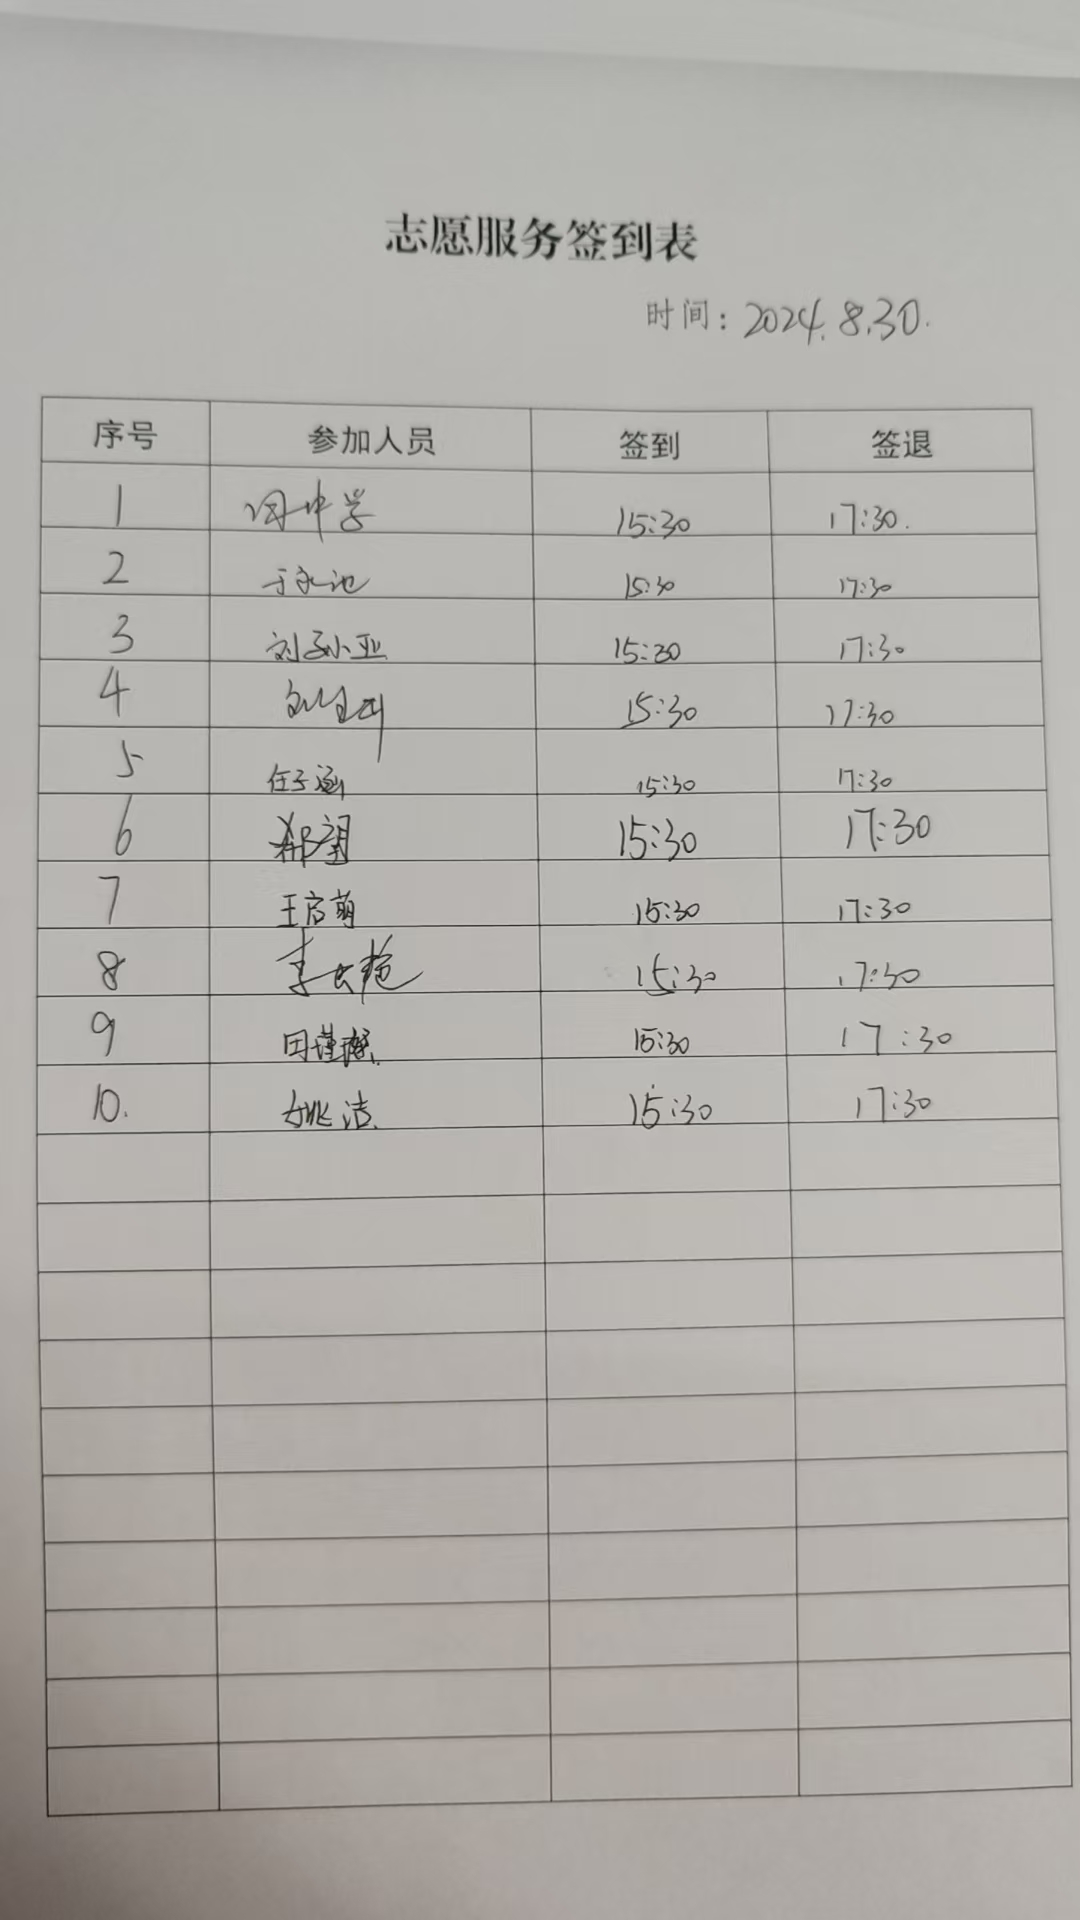 志愿服务签到表
时间：2024.8.30.
序号 参加人员 签到 签退
1 15:30 17:30.
2 于永池 15:30 17:30
3 刘孙小亚 15:30 17:30
4 15:30 17:30
5 任子涵 15:30 17:30
6 郝望 15:30 17:30
7 王启萌 15:30 17:30
8 15:30 17:30
9 田瑾 15:30 17:30
10. 姚洁 15:30 17:30